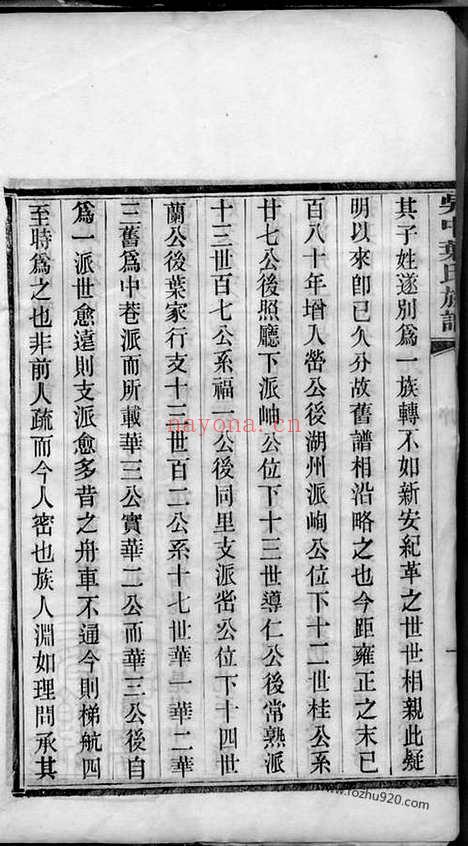 吳中葉氏族譜
其子姓遂別爲一族轉不如新安紀革之世世相親此疑
明以來卽已久分故舊譜相沿略之也今距雍正之末已
百八十年增入嵤公後湖州派峋公位下十二世桂公系
廿七公後照廳下派岫公位下十三世導仁公後常熟派
十三世百七公系福一公後同里支派嵤公位下十四世
蘭公後葉家行支十三世百二公系十七世華一華二華
三舊爲中巷派而所載華三公實華二公而華三公後自
爲一派世愈遠則支派愈多昔之舟車不通今則梯航四
至時爲之也非前人疏而今人密也族人淵如理問承其
nayona.cn
www.rozhu920.com